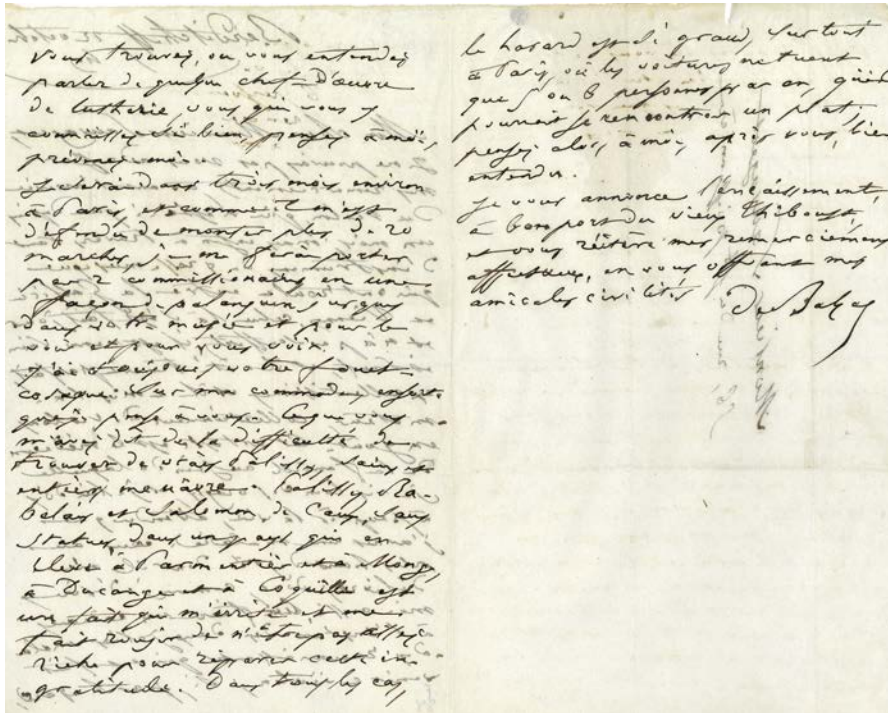 vous trouvez, ou vous entendez
parler de quelque chef-d'œuvre
de lutherie, vous que vous y
connaissez si bien, pensez à moi,
prévenez-moi
Je serai dans trois mois environ
à Paris, et comme il m'est
défendu de monter plus de 20
marches, je me ferai porter
par 2 commissionnaires en une
façon de palanquin, jusques
dans votre musée et pour le
voir et pour vous voir.
J'ai toujours votre fouet
cosaque sur ma commode, ensorte
que je pense à vous. Ce que vous
m'avez dit de la difficulté de
trouver de vrais Palissy, sains et
entiers me navre. Palissy, Ra-
belais et Salomon de Caus, sans
statues, dans un pays qui en
élève à Parmentier et à Monge,
à Ducange et à Coquille est
un fait qui m'irrite et me
fait rougir de n'être pas assez
riche pour réparer cette in-
gratitude. Dans tous les cas,
le hasard est si grand, surtout
à Paris, où les voitures ne tuent
que 5 ou 6 personnes par an, qu'il
pourrait se rencontrer un plat;
pensez alors à moi, après vous, bien
entendu.
Je vous annonce l'encaissement,
à bon port du vieux Thiboust,
et vous réitère mes remerciemens
affectueux, en vous offrant mes
amicales civilités
De Balzac